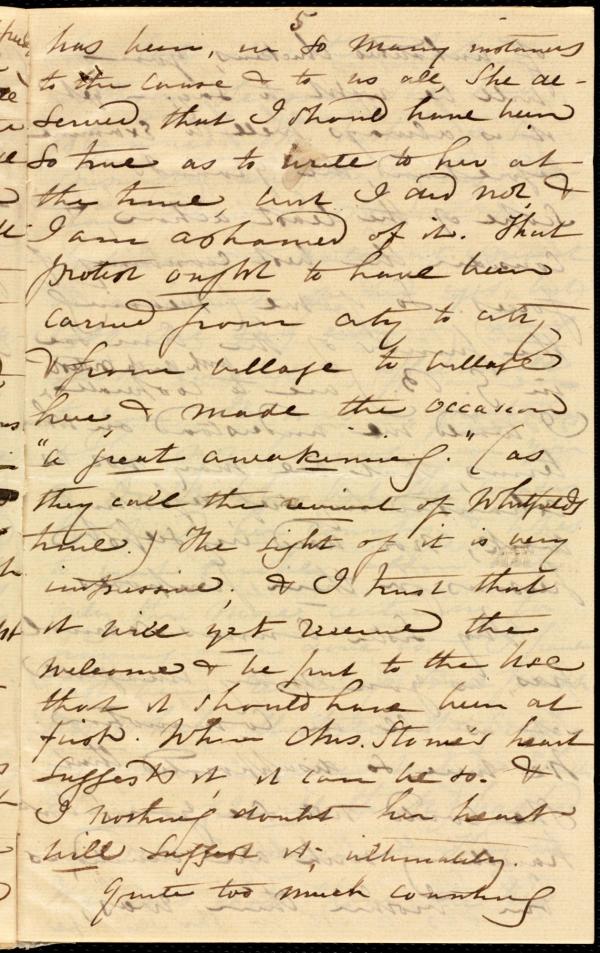 5
has been, in so many instances
to the cause & to us all, She de-
served that I should have been
so true as to write to her at
the time, but I did not, &
I am ashamed of it. That
protest ought to have been
carried from city to city,
& from village to village
here & made the occasion
"a great awakening." (as
they call the revival of Whitfields
time.) The sight of it is very
impressive, & I trust that
it will yet receive the
welcome & be put to the use
that it should have been at
first. When Mrs. Stowe's heart
suggests it, it can be so. &
I nothing doubt her heart
will suggest it, ultimately.
Quite too much counting